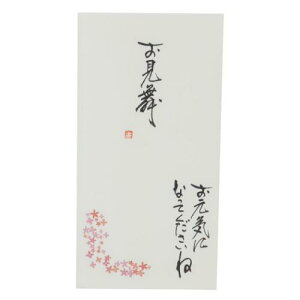 お見舞
お元気に
なってくださいね